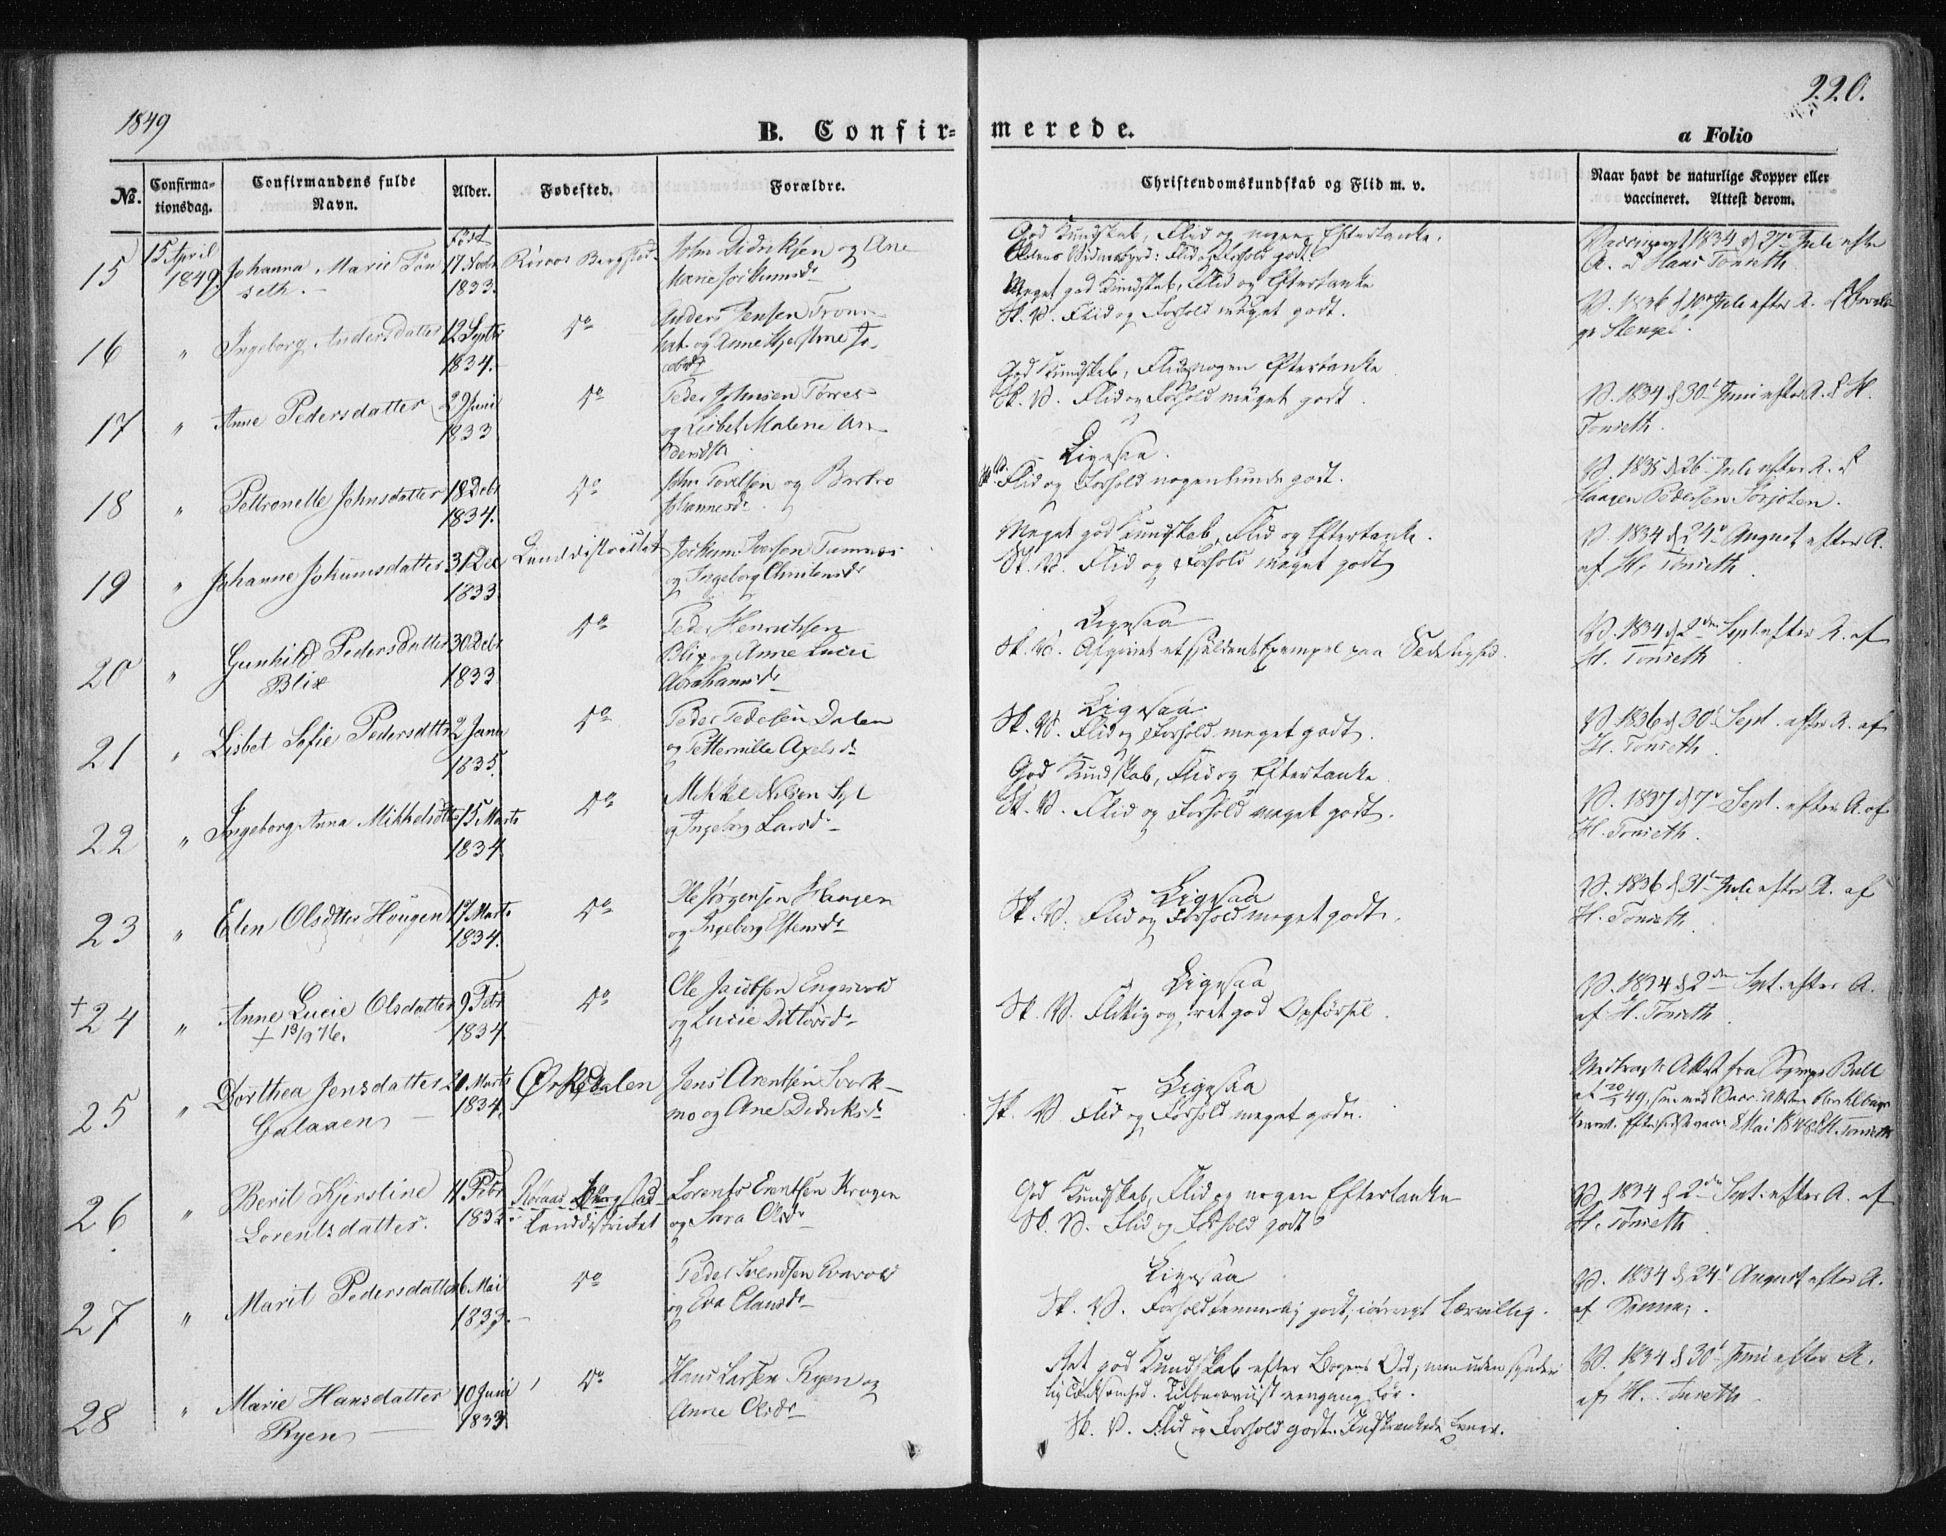 1849
B. Confir-
merede.
220.
a Folio
No.
Confirma-
tionsdag.
Confirmandens fulde
Navn.
Alder.
Fødested.
Forældre.
Christendomskundskab og Flid m. v.
Naar havt de naturlige Kopper eller
vaccineret. Attest derom.
15
15 April
1849.
Johanna Marie Tøn
seth.
Født
17
1833.
Røraas Bergstad
John Didriksen og Ane
Marie Jockumsdr
God Kundskab, Flid og nogen Eftertanke.
Flid og Forhold godt.
Vaccineret 1834 d 27 Juli efter
A. Hans Tønseth.
16
"
Ingeborg Andersdatter
12 Septbr
1834.
Do
Anders Jensen
og Anne
Meget god Kundskab, Flid og Eftertanke
Sk. V. Flid og Forhold meget godt.
V. 1836 d Juli efter A.
Stengel.
17
"
Anne Pedersdatter
29 Juni
1833
Do
Peder Johnsen Tørres
og Lisbet Malene An
dersdtr
God Kundskab, Flid og nogen Eftertanke
Sk. V. Flid og Forhold meget godt.
V. 1834 d 30 Juni efter A. H.
Tønseth.
18
"
Petronelle Johnsdatter
18 Debr
1834.
Do
John og Barbro
Johannesdr
Ligesaa.
Sk. V. Flid og Forhold nogenlunde godt.
V. 1835 d 26 Juli efter A.
Haagen Pedersen
19
"
Johanne Jokumsdatter
31 Dec
1833
Landdistriktet
Jockum Iversen Tamnæs
og Ingeborg Christensdr
Meget god Kundskab, Flid og Eftertanke.
Sk. V. Flid og Forhold meget godt
V. 1834 d 24 August efter A.
af H. Tønseth.
20
"
Gunhild Pedersdatter
Blix
30 Debr
1833
Do
Peder Henrichsen
Blix og Anne Lucie
Abrahamsdr
Ligesaa
Sk. V. Afgivet et sieldent Exempel paa Sædelighed.
V. 1834 d 2den Sept efter A. af
H. Tønseth
21
"
Lisbet Sofie Pedersdtter
2 Janu
1835.
Do
Peder Pedersen Dalen
og Petternille Axelsdr
Ligesaa.
Sk. V. Flid og Forhold meget godt.
V. 1836 d 30 Sept. efter A. af
H. Tønseth.
22
"
Ingeborg Anna Mikkelsdtter
15 Marts
1834.
Do
Mikkel Nilsen Syl
og Ingeborg Larsdr
God Kundskab, Flid og Eftertanke.
Sk. V. Flid og Forhold meget godt.
V. 1837 d 7 Sept. efter A. af
H. Tønseth.
23
"
Elen Olsdtter Hougen
17 Marts
1834.
Do
Ole Jørgensen Haugen
og Ingeborg Estensdr
Ligesaa
Sk. V. Flid og Forhold meget godt.
V. 1836 d 31 Juli efter A. af
H. Tønseth.
+ 24
"
Anne Lucie Olsdatter
+ 19/9 76.
9 Febr
1834.
Do
Ole Jacobsen Engevold
og Lucie Ditlevsdr
Ligesaa
Sk. V. Flittig og ret god Opførsel.
V. 1834 d 2den Spt. efter A.
af H. Tønseth.
25
"
Dorthea Jensdatter
Galaaen
21 Marts
1834.
Ørkedalen
Jens Arentsen Svork-
mo og Ane Didriksdr
Ligesaa
Sk. V. Flid og Forhold meget godt.
Attest fra Sogneprest Bull
af 20/1 49,
8 Mai 1848 H. Tønseth
26
"
Berit Kjerstine
Lorentsdatter.
11 Febr
1833
Røraas Bergstad
Landdistriktet
Lorents Erentsen Krogen
og Sara Olsdr
God Kundskab, Flid og nogen Eftertanke
Sk. V. Flid og Forhold godt
V. 1834 d 2den Sept. efter A. af
H. Tønseth
27
"
Marit Pedersdatter
6 Mai
1833.
Do
Peder Svendsen Evavold
og Eva Clausdr
Ligesaa
Sk. V. Forhold temmelig godt, iøvrigt lærvillig.
V. 1834 d 24 August efter A.
af
28
"
Marie Hansdatter
Ryen
10 Juni
1833.
Do
Hans Larsen Ryen og
Anne Olsdr
Ret god Kundskab efter Bogens Ord, men uden synder-
lig Tænksomhed. Tilbageviist eengang før.
Sk. V. Flid og Forhold godt. Indskrænkede Evner.
V. 1834 d 30 Juni efter A.
af H. Tønseth